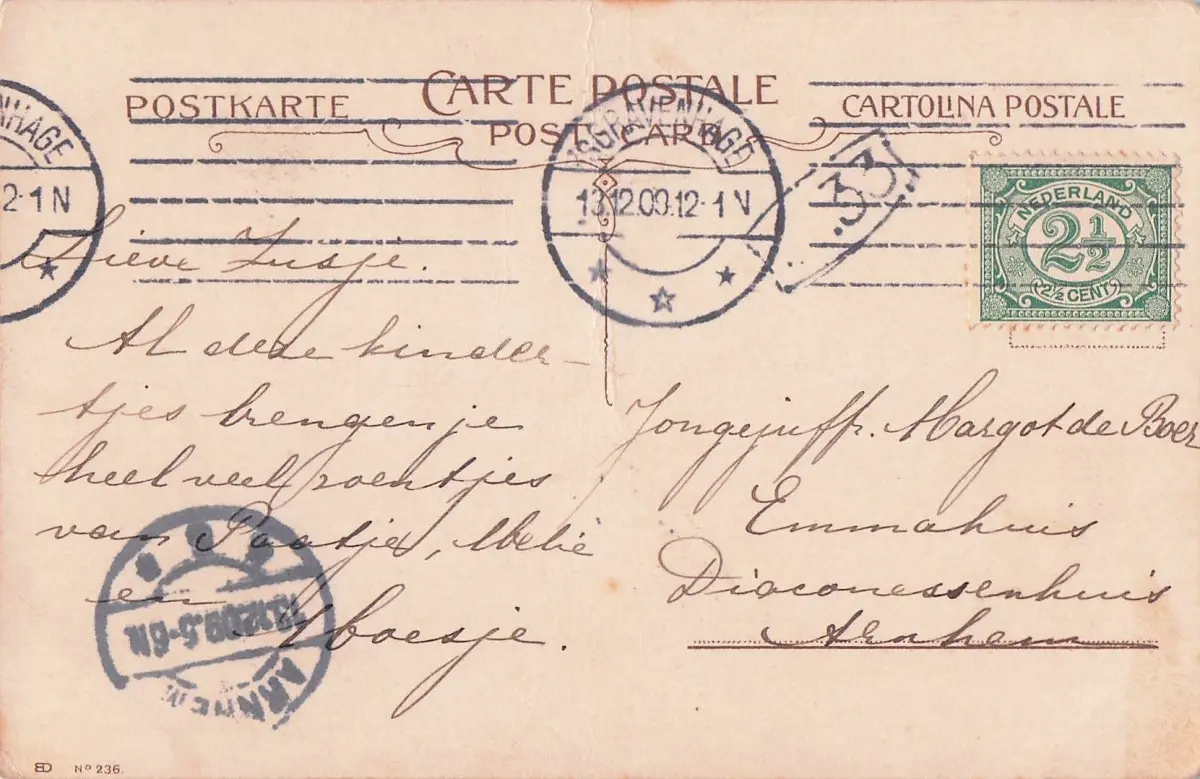 POSTKARTE
CARTE POSTALE
POST CARD
CARTOLINA POSTALE
NHAGE
2·1N
'SGRAVENHAGE
13.12.09.12·1N
.33
NEDERLAND
2½
2½ CENT
Lieve Zusje.
Al deze kinder-
tjes brengen je
heel veel zoentjes
van Paatje,
en Moesje.
Jongejuffr. Margot de Boer
Emmahuis
Diaconessenhuis
Arnhem
13.12.09.5-6N
ARNHEM
Nº 236.